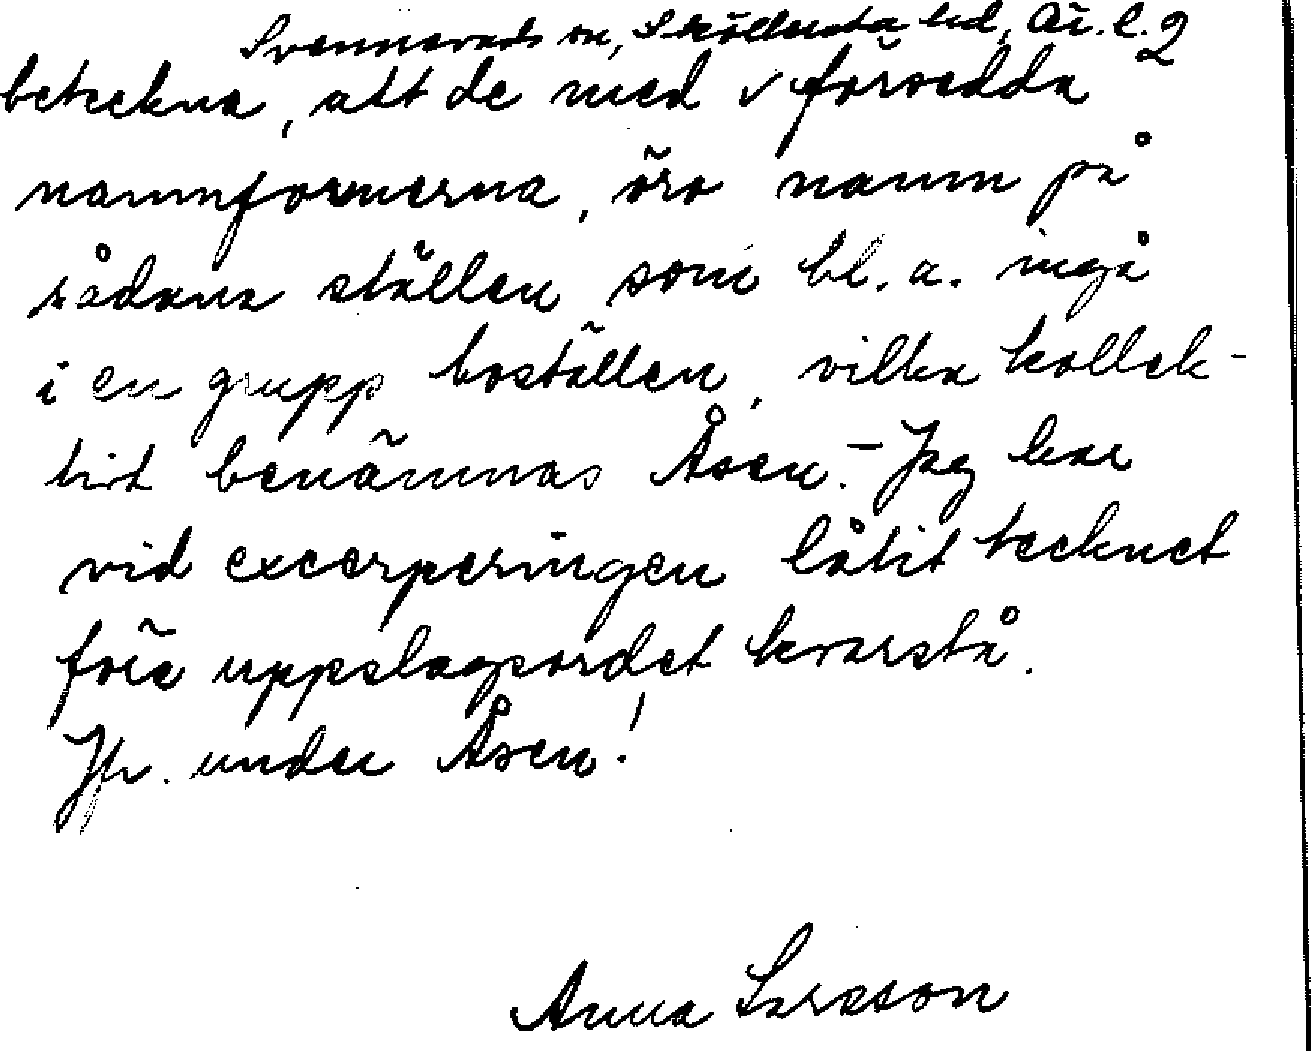 Svennevads sn, Sköllersta hd, Ör. l. 2
beteckna, att de med v försedda
namnformerna, äro namn på
sådana ställen som bl. a. ingå
i en grupp boställen, vilka kollek-
tivt benämnas Åsen. – Jag har
vid excerperingen låtit tecknet
före uppslagsordet kvarstå.
Jfr. under Åsen!
Anna Larsson